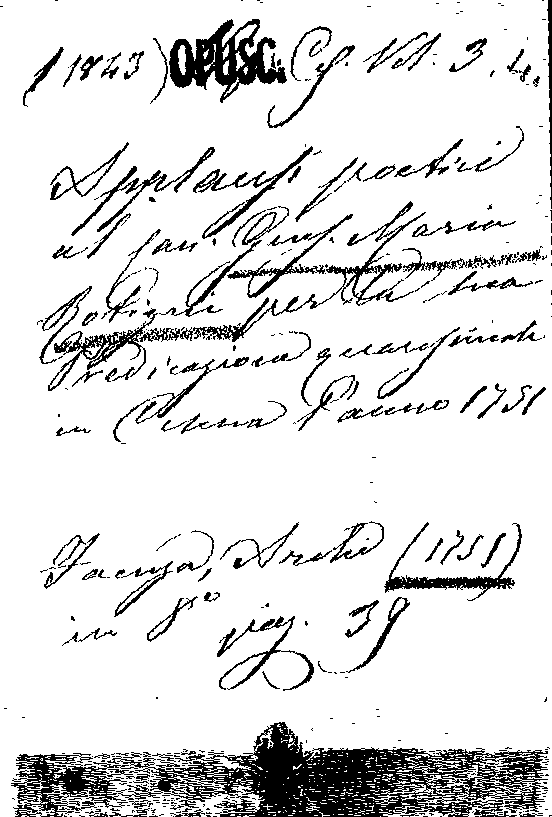 (1843) OPUSC. Ces. Vol. 3. 4.
Applausi poetici
al san. Gius. Maria
per la sua
Predicazione quaresimale
in Cesena l'anno 1751
Faenza, Archi (1751)
in 8vo pag. 39